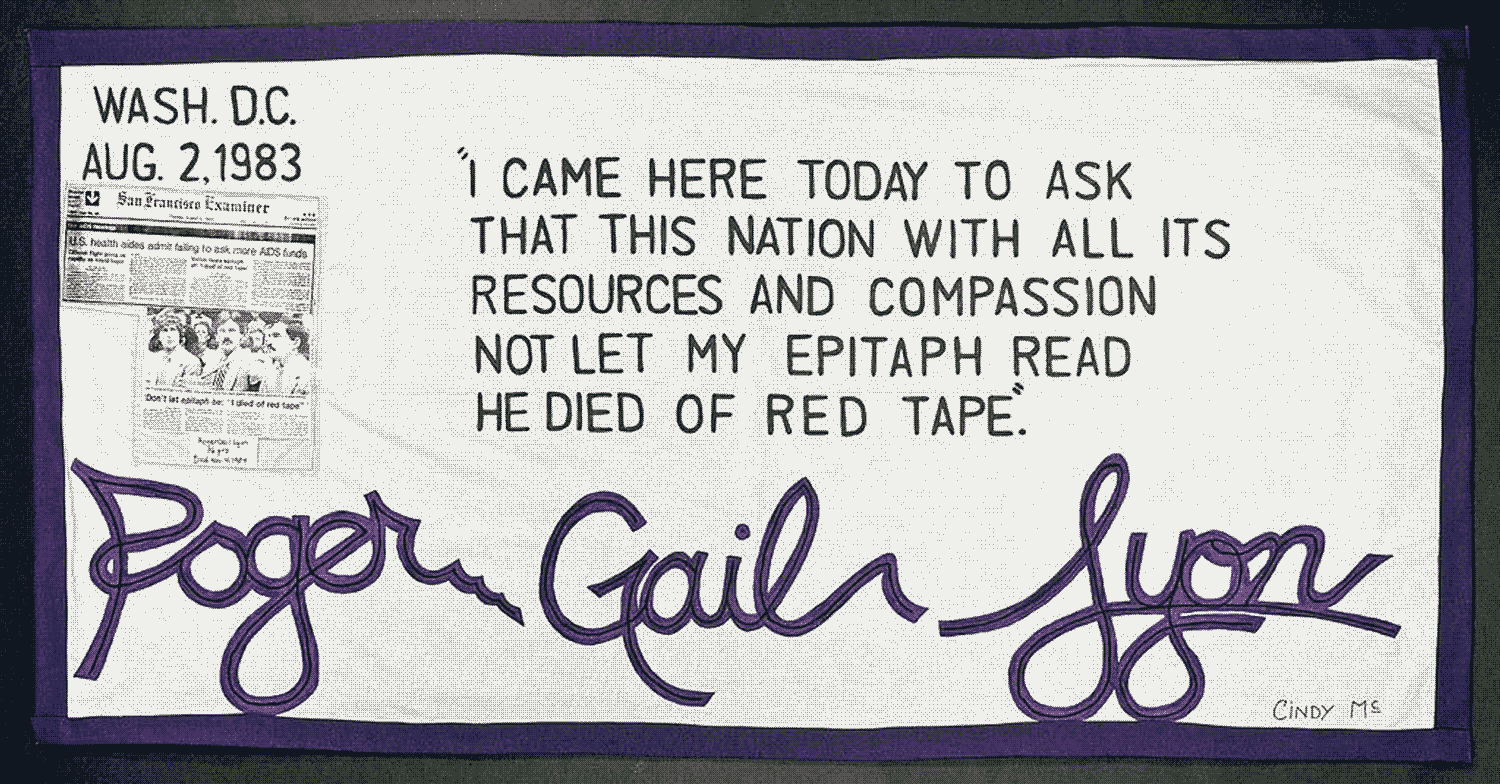 WASH. D.C.
AUG. 2, 1983
San Francisco Examiner
U.S. health aides admit failing to ask more AIDS funds
Don't let epitaph be: "I died of red tape"
"I CAME HERE TODAY TO ASK
THAT THIS NATION WITH ALL ITS
RESOURCES AND COMPASSION
NOT LET MY EPITAPH READ
HE DIED OF RED TAPE."
Roger Gail Lyon
CINDY Mc